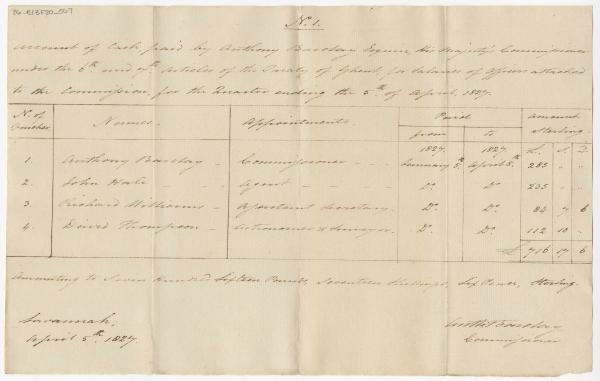 N. 1.
Account of Cash paid by Anthony Barclay Esquire, His Majesty's Commissioner
under the 6th and 7th Articles of the Treaty of Ghent, for Salaries of Officers attached
to the Commission, for the Quarter ending the 5th of April, 1827.
N. of Voucher Names. Appointments. Paid from to Amount Sterling
1827. 1827. £. S. D
1. Anthony Barclay Commissioner January 5th April 5th 285 " "
2. John Hale Agent Do. Do. 235 " "
3 Richard Williams Assistant Secretary Do. Do. 84 7 6
4. David Thompson Astronomer & Surveyor Do. Do. 112 10 "
£ 716 17 6
Amounting to Seven Hundred Sixteen Pounds, Seventeen Shillings, Six Pence, Sterling.
Savannah,
April 5th. 1827.
Anth. Barclay
Commissioner